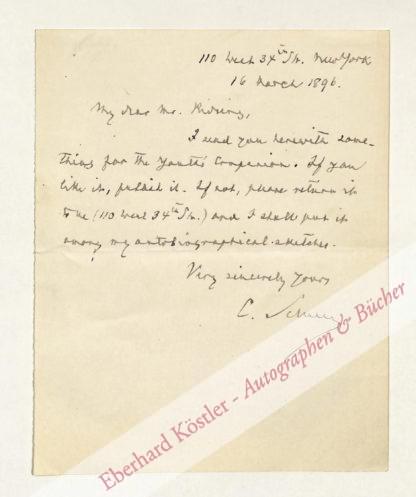 110 West 34th St. New York
16 March 1896.
My dear Mr. Rideing,
I send you herewith some-
thing for the Youth's Companion. If you
like it, publish it. If not, please return it
to me (110 West 34th St.) and I shall put it
among my autobiographical sketches.
Very sincerely Yours
C. Schurz
Eberhard Köstler - Autographen & Bücher